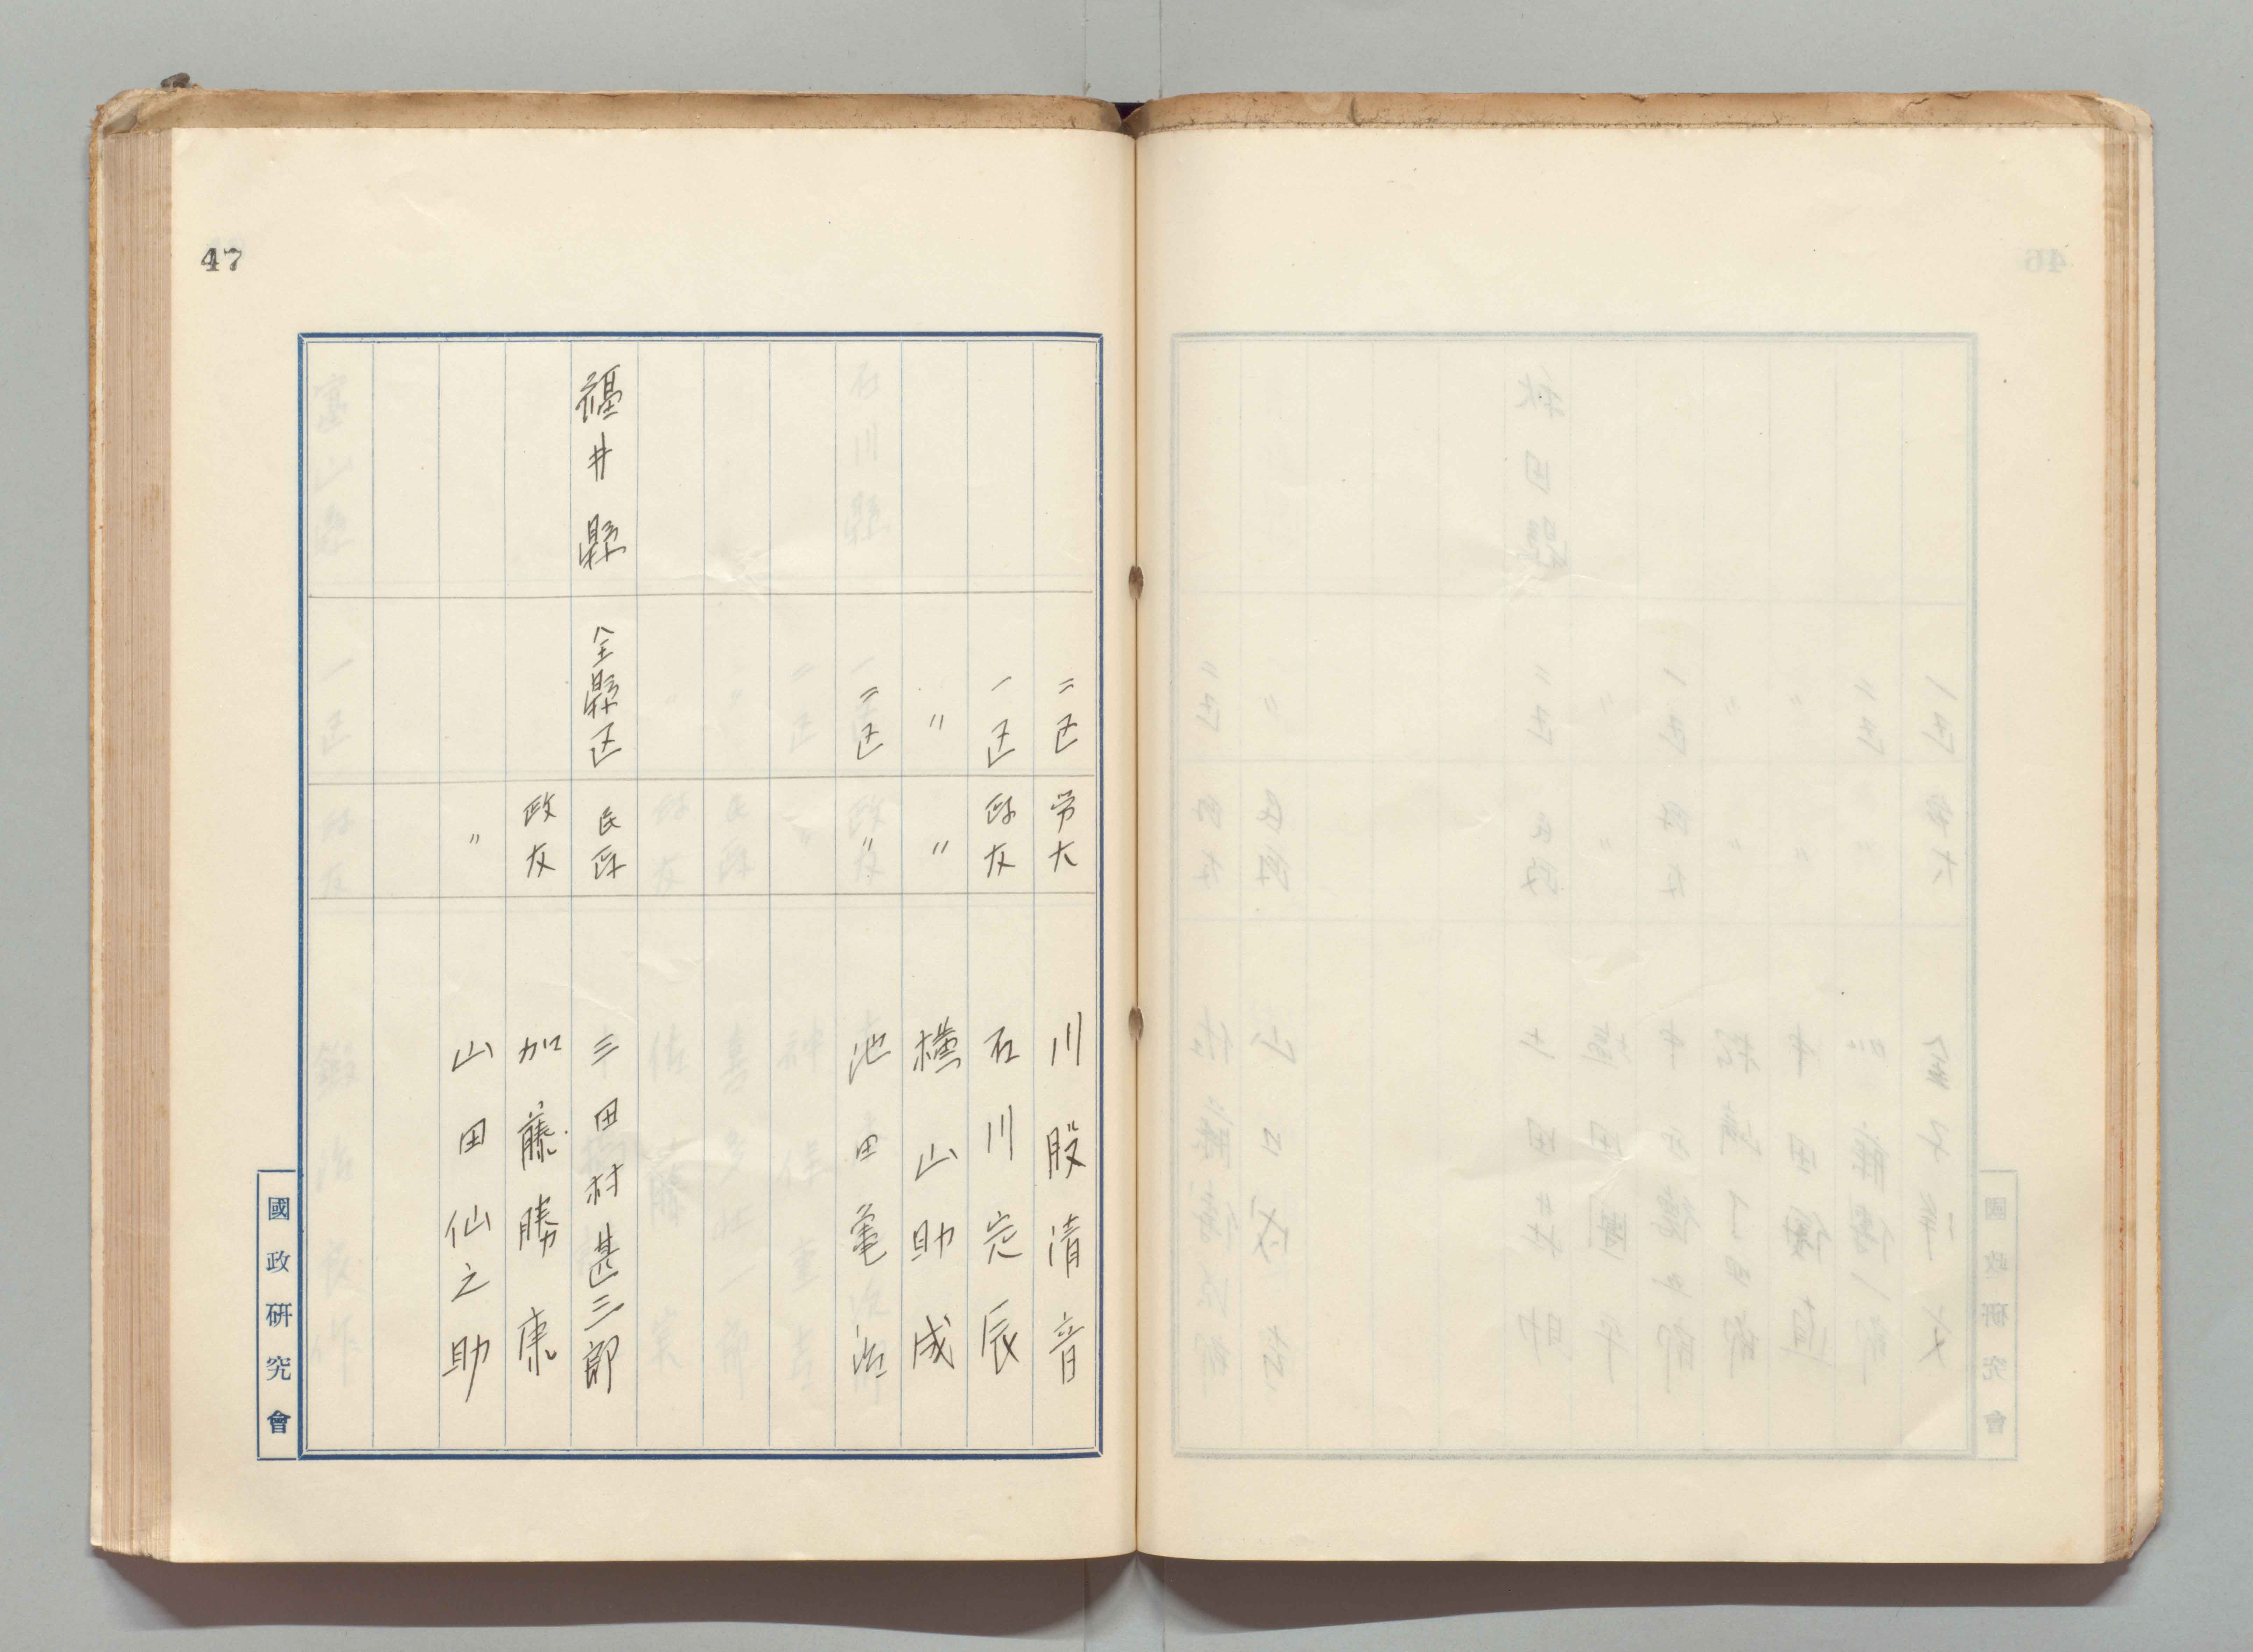 47
二区 労大 川股清音
一区 政友 石川定辰
〃 〃 横山助成
二区 〃 池田亀治
福井縣 全縣区 民政 三田村甚三郎
政友 加藤勝康
〃 山田仙之助
國政研究會